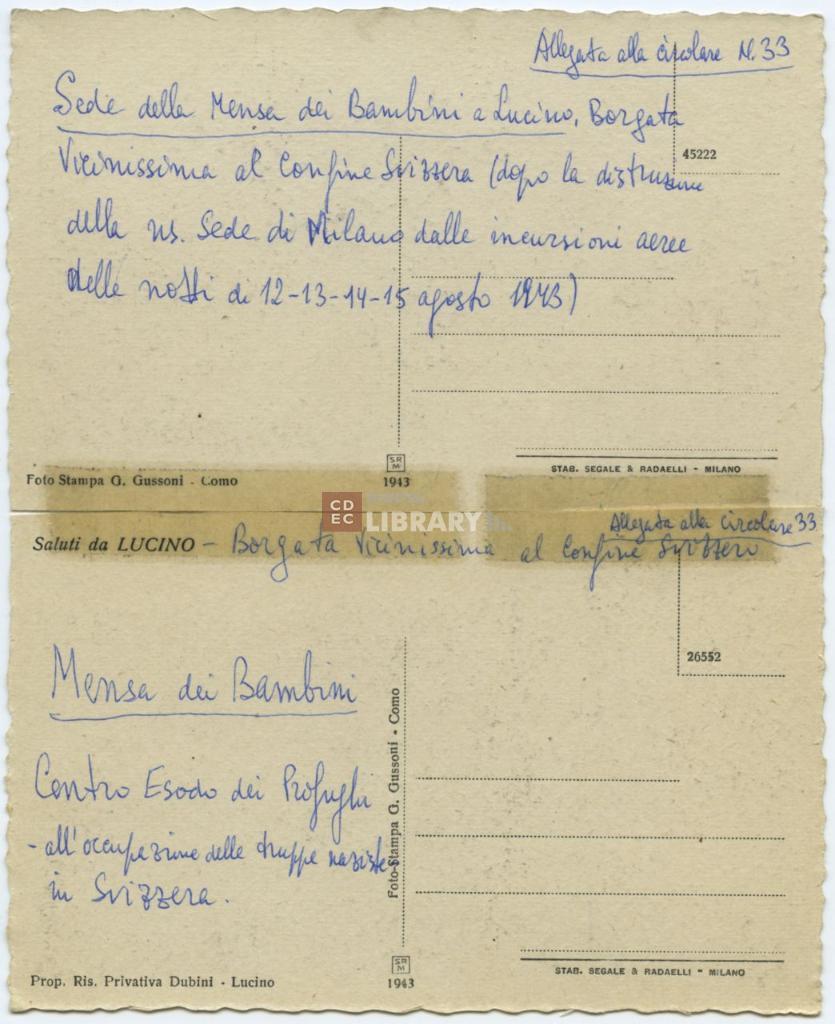 Allegata alla circolare N. 33
Sede della Mensa dei Bambini a Lucino, Borgata
Vicinissima al Confine Svizzera (dopo la distruzione
45222
della ns. Sede di Milano dalle incursioni aeree
delle notti di 12-13-14-15 agosto 1943)
Foto Stampa G. Gussoni - Como
SRM
1943
STAB. SEGALE & RADAELLI - MILANO
CDEC
LIBRARY
Allegata alla circolare 33
Saluti da LUCINO - Borgata Vicinissima al Confine Svizzero
26552
Mensa dei Bambini
Centro Esodo dei Profughi
- all'occupazione delle truppe naziste
in Svizzera.
Foto-Stampa G. Gussoni - Como
Prop. Ris. Privativa Dubini - Lucino
SRM
1943
STAB. SEGALE & RADAELLI - MILANO